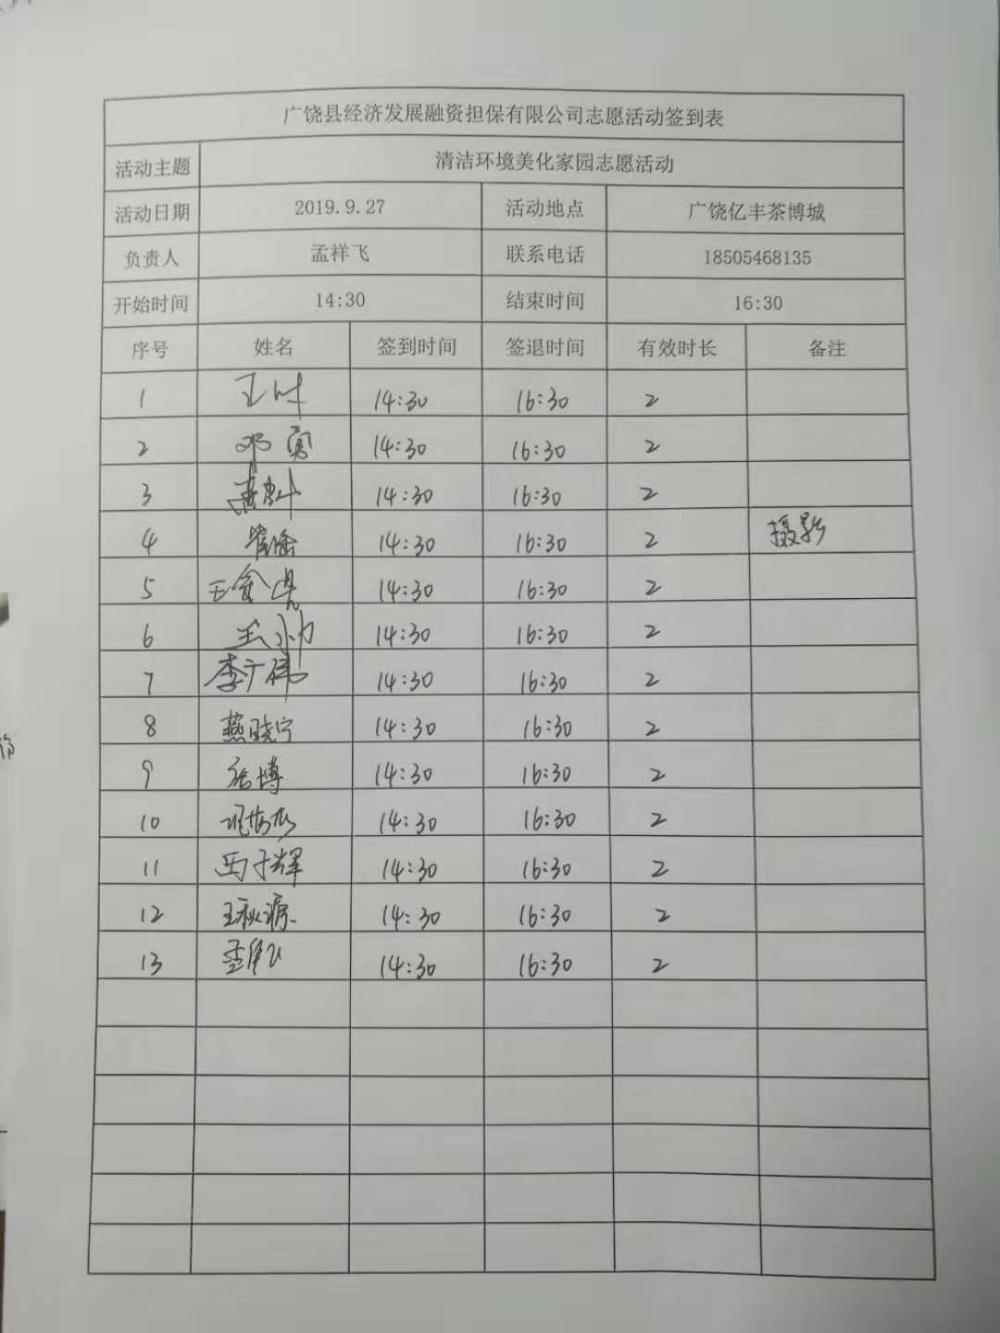 广饶县经济发展融资担保有限公司志愿活动签到表
活动主题 清洁环境美化家园志愿活动
活动日期 2019.9.27 活动地点 广饶亿丰茶博城
负责人 孟祥飞 联系电话 18505468135
开始时间 14:30 结束时间 16:30
序号 姓名 签到时间 签退时间 有效时长 备注
1 14:30 16:30 2
2 邓勇 14:30 16:30 2
3 14:30 16:30 2
4 14:30 16:30 2 摄影
5 王金 14:30 16:30 2
6 王帅 14:30 16:30 2
7 李广伟 14:30 16:30 2
8 燕晓宁 14:30 16:30 2
9 张博 14:30 16:30 2
10 14:30 16:30 2
11 西子辉 14:30 16:30 2
12 王秋源 14:30 16:30 2
13 14:30 16:30 2